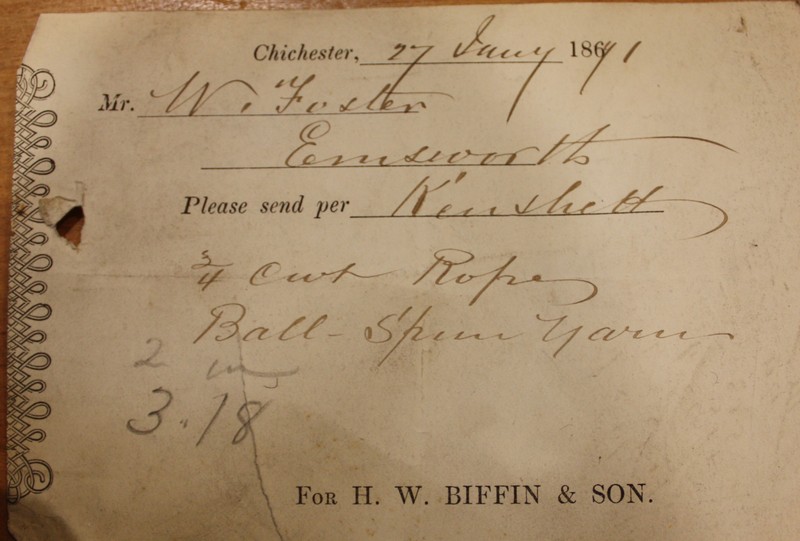 Chichester, 27 Jany 1871
Mr. W. Foster
Emsworth
Please send per Kenshett
3/4 Cwt Rope
Ball Spun Yarn
2
3.18
FOR H. W. BIFFIN & SON.